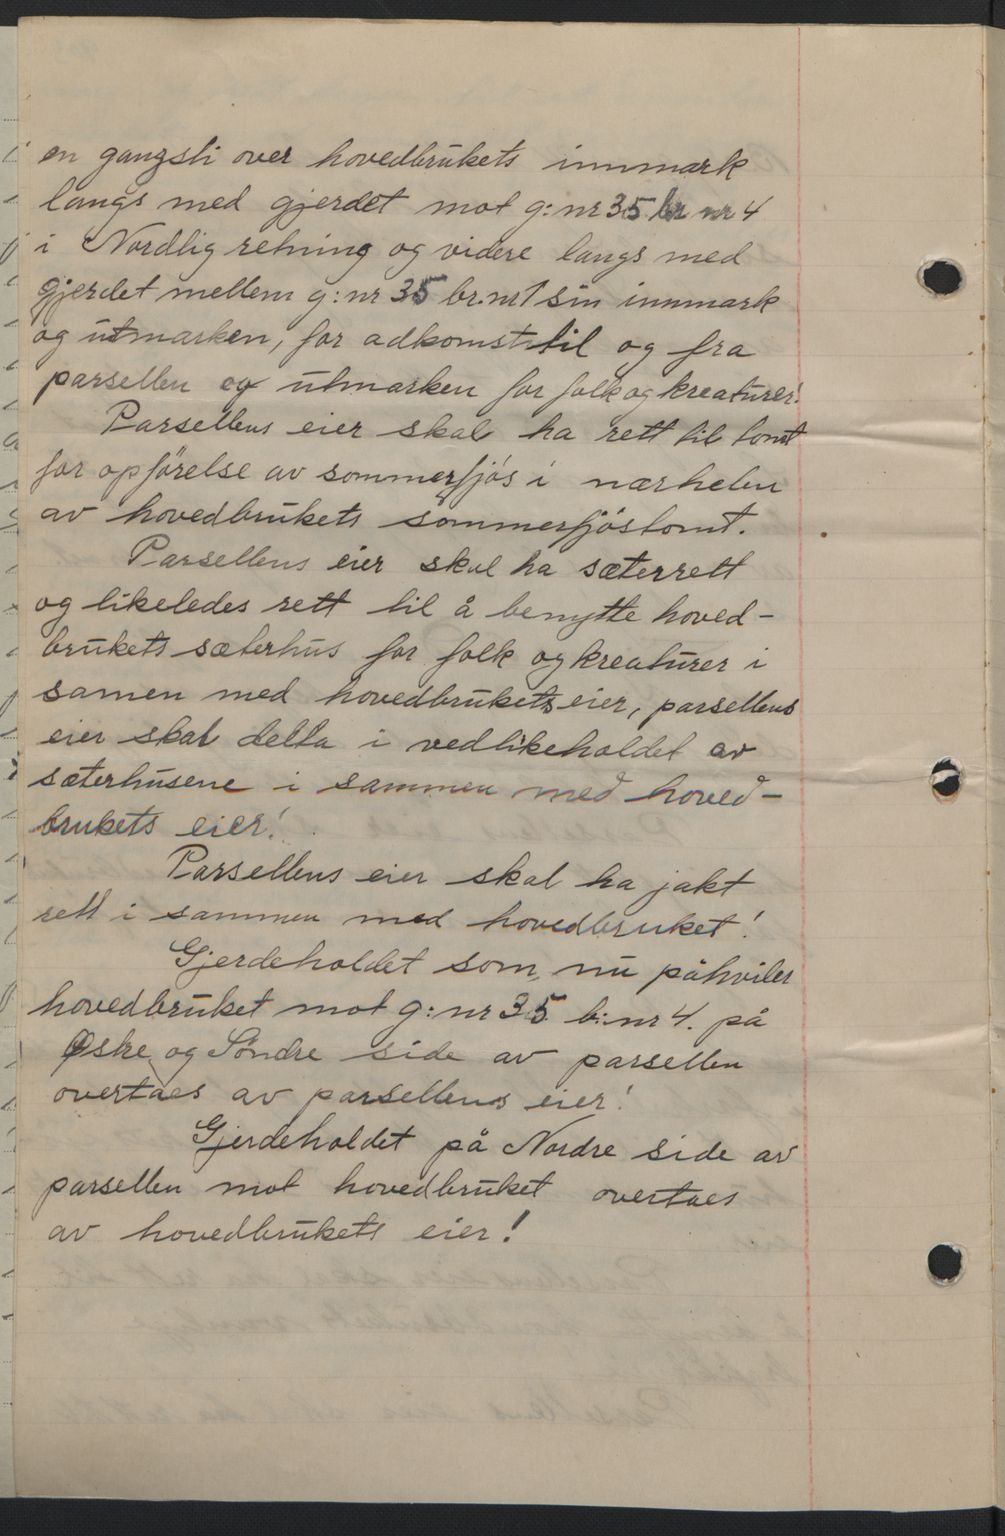 en gangsti over hovedbrukets innmark
langs med gjerdet mot g:nr 35 br nr 4
i Nordlig retning og videre langs med
gjerdet mellem g:nr 35 br.nr 1 sin innmark
og utmarken, for adkomst til og fra
parsellen og utmarken for folk og kreaturer!
Parsellens eier skal ha rett til tomt
for opförelse av sommerfjós i nærheten
av hovedbrukets sommerfjöstomt.
Parsellens eier skal ha sæterrett
og likeledes rett til å benytte hoved-
brukets sæterhus for folk og kreaturer i
samen med hovedbrukets eier, parsellens
eier skal delta i vedlikeholdet av
sæterhusene i sammen med hoved-
brukets eier!
Parsellens eier skal ha jakt
rett i sammen med hovedbruket!
Gjerdeholdet som nu påhviler
hovedbruket mot g:nr 35 b:nr 4. på
Østre og Söndre side av parsellen
overtaes av parsellens eier!
Gjerdeholdet på Nordre side av
parsellen mot hovedbruket overtaes
av hovedbrukets eier!